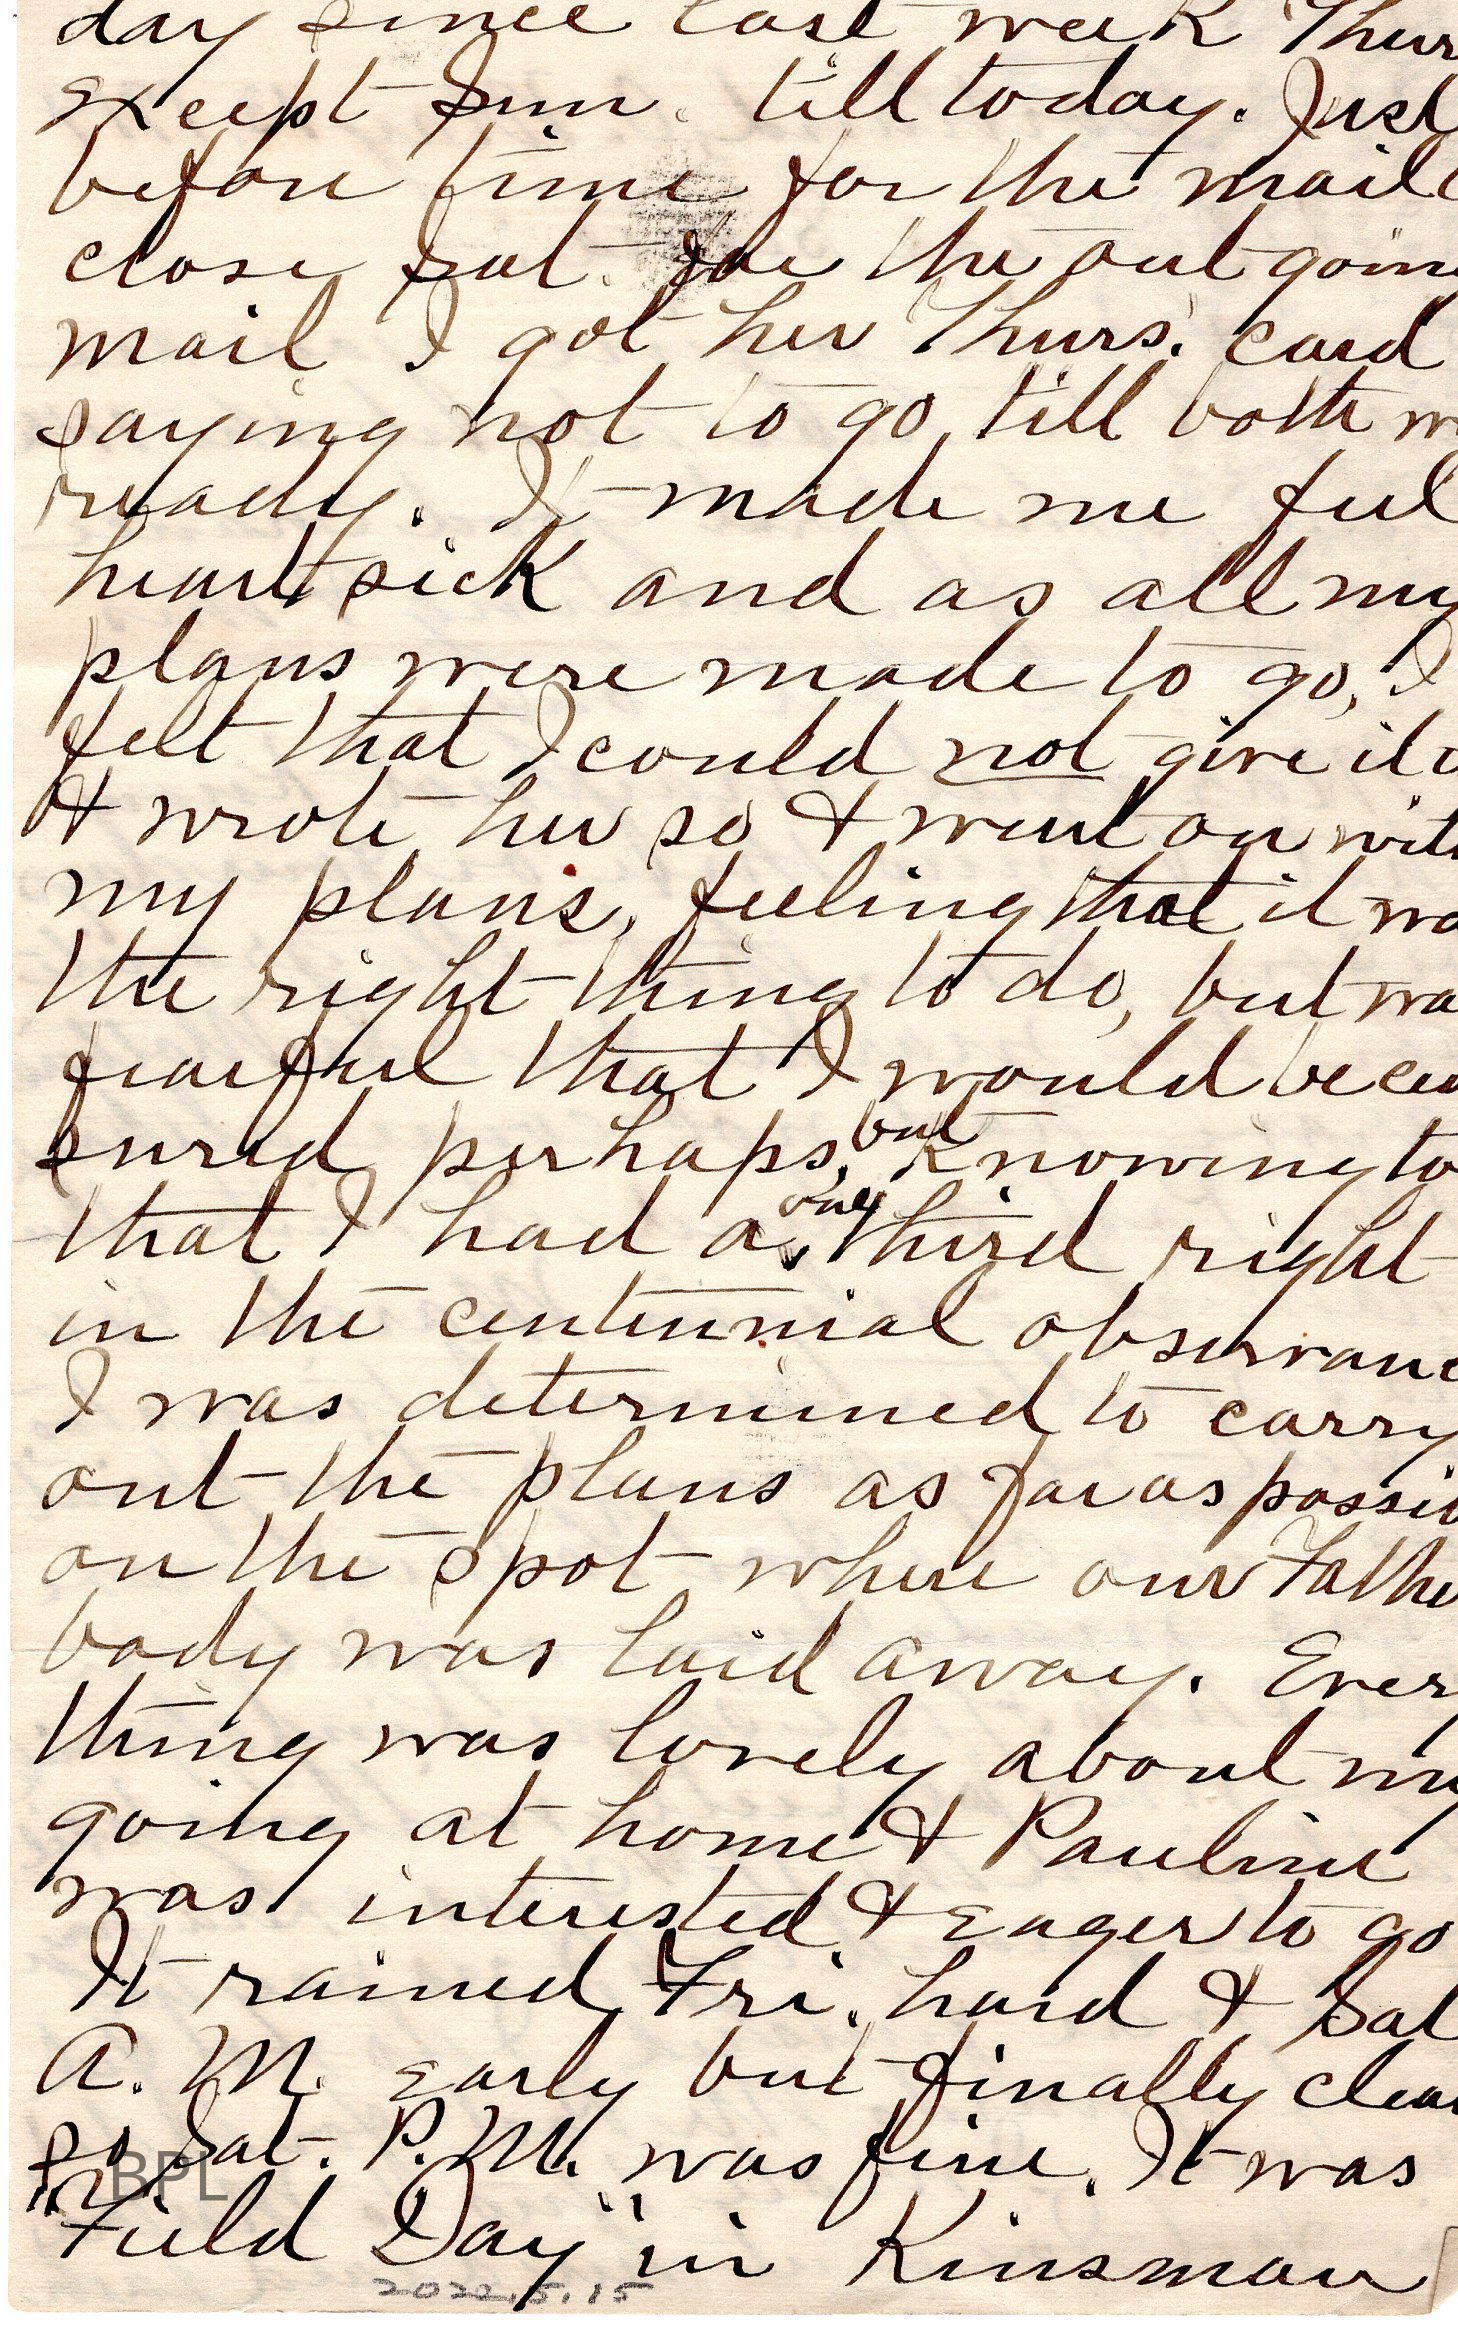 day since last week Thur
except Sun. till today. Just
before time for the mail
close Sat. for the out going
mail I got her Thurs. card
saying not to go till both w
ready. It made me feel
heart sick and as all my
plans were made to go, I
felt that I could not give it u
& wrote her so & went on with
my plans, feeling that it wa
the right thing to do, but wa
fearful that I would be cen
sured perhaps, but knowing to
that I had a one third right
in the centennial observanc
I was determined to carry
out the plans as far as possib
on the spot where our Father
body was laid away. Every
thing was lovely about my
going at home & Pauline
was interested & eager to go
It rained Fri. hard & Sat
A. M. early but finally clear
so Sat. P. M. was fine. It was
"Field Day" in Kinsman
BPL
2022.5.15